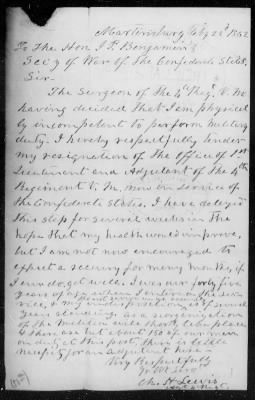 Martinsburg Feby 22d 1862
To The Hon J. P. Benjamin
Secy of War of The Confederate States
Sir
The Surgeon of The 4th Regt V. M
having decided That I am physical
ly incompetent to perform military
duty. I hereby respectfully tender
my resignation of The office of 1st
Lieutenant and Adjutant of The 4th
Regiment V. M. now in service of
The Confederate States. I have delayed
This step for several weeks in The
hope That my health would improve,
but I am not now encouraged to
expect a recovery for many months, if
I ever do get well. I was over forty five
years of age when I entered The ser
vice, &
years standing as a
of The Militia will shortly take place
& There are but about 150 of our men
on duty at This post, There is little
necessity for an adjutant here
Very Respectfully
Yr Obt Servt
Chs H Lewis